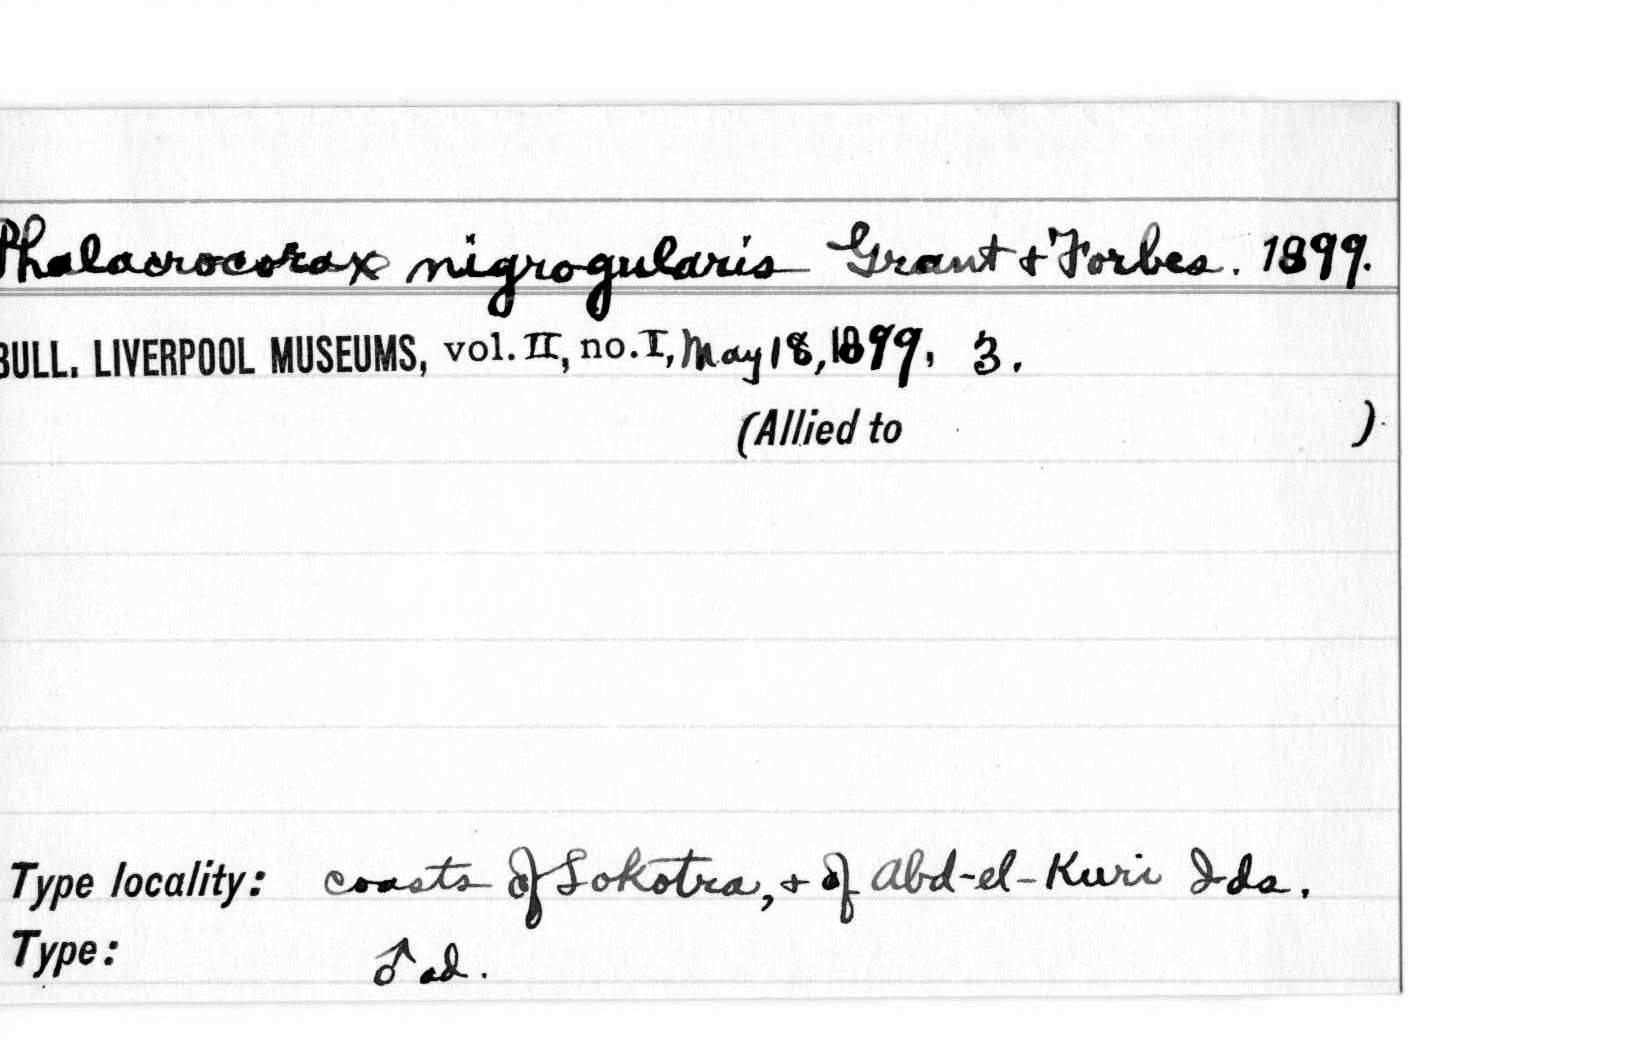 Phalacrocorax nigrogularis Grant & Forbes. 1899.
BULL. LIVERPOOL MUSEUMS, vol. II, no. I, May 18, 1899, 3.
(Allied to )
Type locality: coasts of Sokotra, & of Abd-el-Kuri Ids.
Type: ♂ ad.